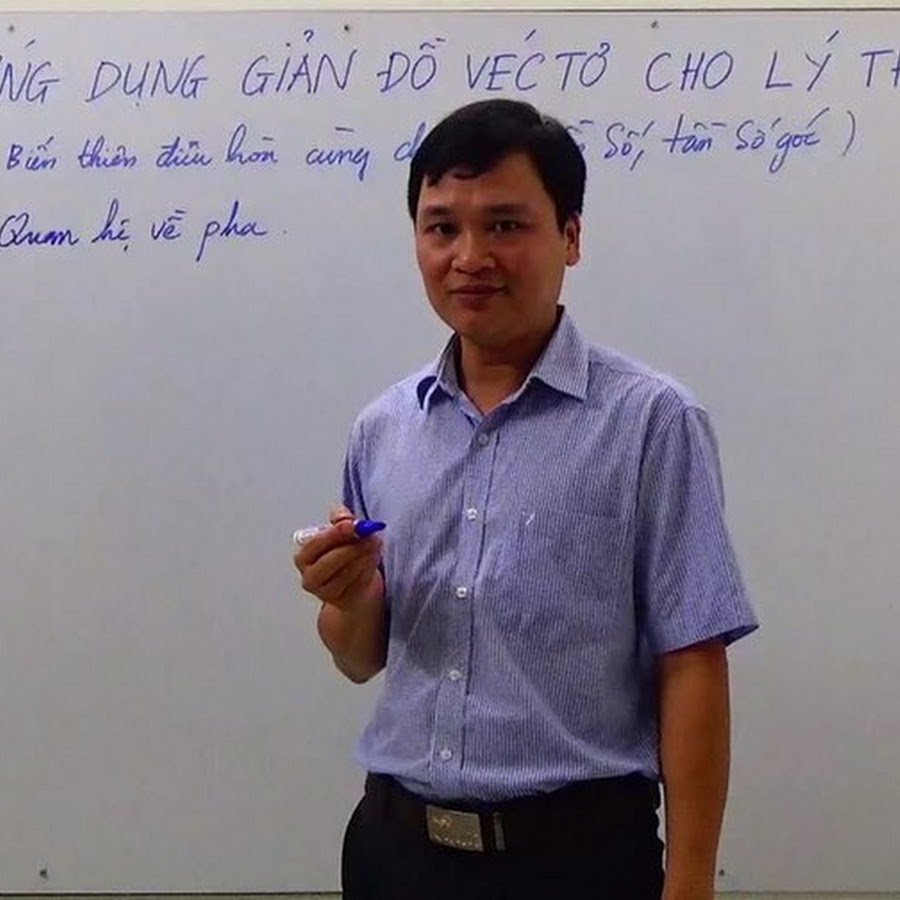 ỨNG DỤNG GIẢN ĐỒ VÉCTƠ CHO LÝ
Biến thiên điều hòa cùng số, tần số góc )
Quan hệ về pha.